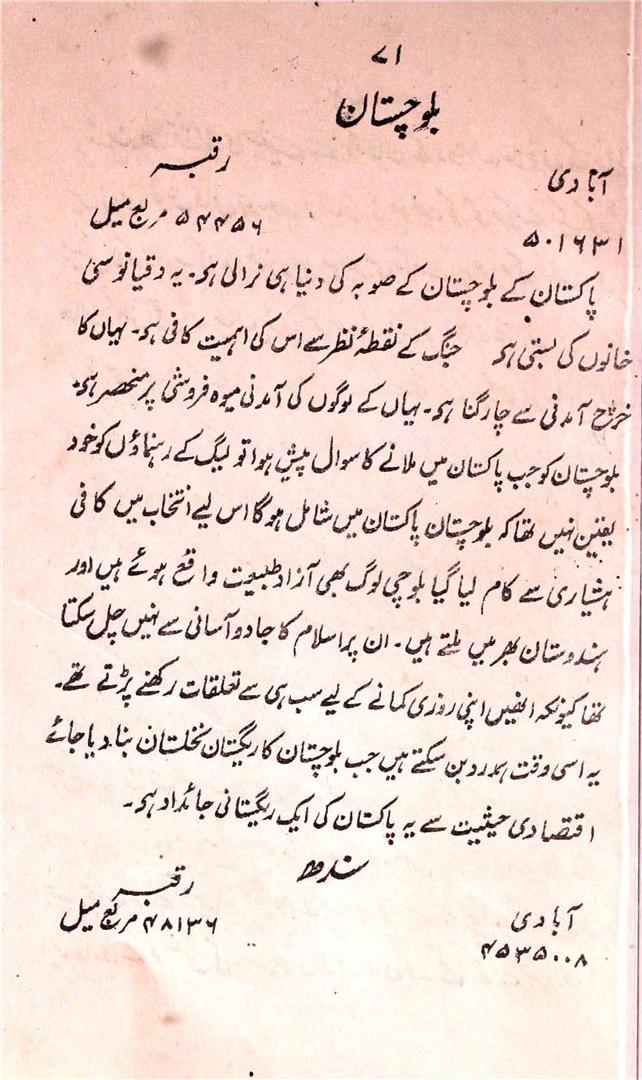 ۷۱
بلوچستان
آبادی رقبہ
۵۰۱۶۳۱ ۵۴۴۵۶ مربع میل
پاکستان کے بلوچستان کے صوبہ کی دنیا ہی نرالی ہے۔ یہ دقیانوسی
خانوں کی بستی ہے جنگ کے نقطۂ نظر سے اس کی اہمیت کافی ہے۔ یہاں کا
خرچ آمدنی سے چار گنا ہے۔ یہاں کے لوگوں کی آمدنی میوہ فروشی پر منحصر ہے۔
بلوچستان کو جب پاکستان میں ملانے کا سوال پیش ہوا تو لیگ کے رہنماؤں کو خود
یقین نہیں تھا کہ بلوچستان پاکستان میں شامل ہوگا اس لیے انتخاب میں کافی
ہشیاری سے کام لیا گیا بلوچی لوگ بھی آزاد طبیعت واقع ہوئے ہیں اور
ہندوستان بھر میں ملتے ہیں۔ ان پر اسلام کا جادو آسانی سے نہیں چل سکتا
تھا کیونکہ انھیں اپنی روزی کمانے کے لیے سب ہی سے تعلقات رکھنے پڑتے تھے۔
یہ اسی وقت ہمدرد بن سکتے ہیں جب بلوچستان کا ریگستان نخلستان بنا دیا جائے
اقتصادی حیثیت سے یہ پاکستان کی ایک ریگستانی جائداد ہے۔
سندھ
آبادی رقبہ
۴۵۳۵۰۰۸ ۴۸۱۳۶ مربع میل